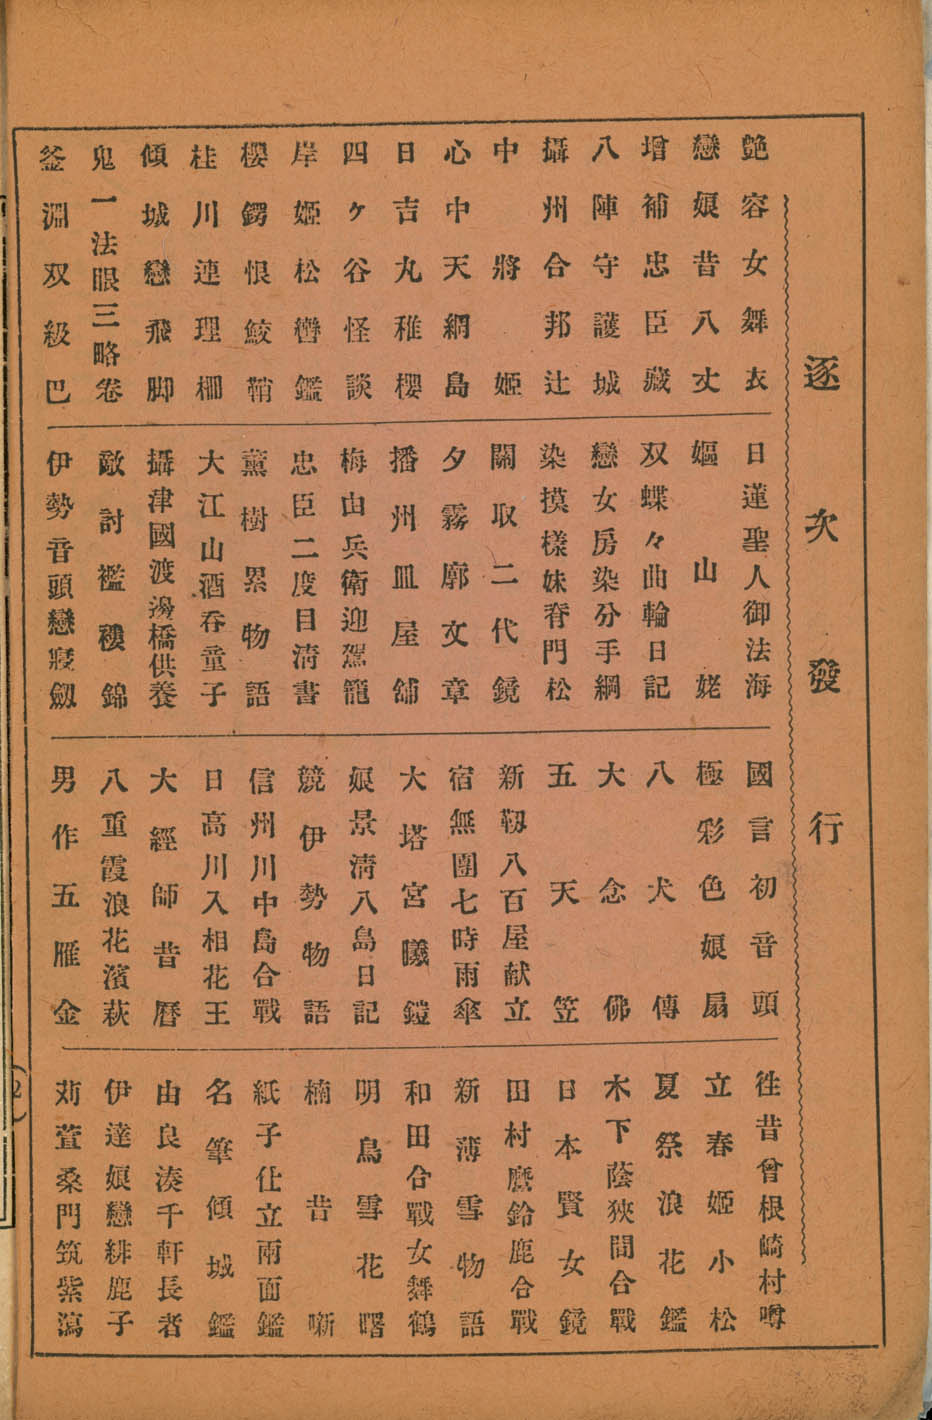 逐次發行
艶容女舞衣
戀娘昔八丈
增補忠臣藏
八陣守護城
攝州合邦辻
中將姬
心中天網島
日吉丸稚櫻
四ヶ谷怪談
岸姬松轡鑑
櫻鍔恨鮫鞘
桂川連理柵
傾城戀飛脚
鬼一法眼三略卷
釜淵双級巴
日蓮聖人御法海
嫗山姥
双蝶々曲輪日記
戀女房染分手綱
染摸樣妹脊門松
關取二代鏡
夕霧廓文章
播州皿屋舖
梅由兵衛迎駕籠
忠臣二度目淸書
薫樹累物語
大江山酒呑童子
攝津國渡邊橋供養
敵討襤褸錦
伊勢音頭戀寢劔
國言初音頭
極彩色娘扇
八犬傳
大念佛
五天笠
新靱八百屋献立
宿無團七時雨傘
大塔宮曦鎧
娘景淸八島日記
競伊勢物語
信州川中島合戰
日高川入相花王
大經師昔曆
八重霞浪花濱萩
男作五雁金
徃昔曾根崎村噂
立春姬小松
夏祭浪花鑑
木下蔭狹間合戰
日本賢女鏡
田村麿鈴鹿合戰
新薄雪物語
和田合戰女舞鶴
明烏雪花曙
楠昔噺
紙子仕立兩面鑑
名筆傾城鑑
由良湊千軒長者
伊達娘戀緋鹿子
苅萱桑門筑紫𤄃